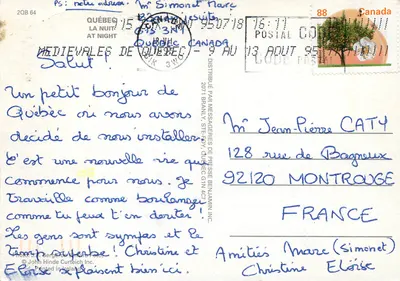 JOB 64
PS: notre adresse: Mr Simonet Marc
QUÉBEC
LA NUIT
AT NIGHT
G1S 3N1
QUÉBEC CANADA
CANADA
950718 16:11
POSTAL CODE
CODE POSTAL
88 Canada
MEDIEVALES DE QUEBEC 9 AU 13 AOUT 95
Salut!
Un petit bonjour de
Québec où nous avons
décidé de nous installer
C'est une nouvelle vie qui
commence pour nous. Je
travaille comme boulanger
comme tu peux t'en douter!
Les gens sont sympas et le
temps superbe! Christine et
Eloïse se plaisent bien ici.
© John Hinde Curteich Inc.
Mr Jean-Pierre CATY
128 rue de Bagneux
92120 MONTROUGE
FRANCE
Amitiés Marc (Simonet)
Christine Eloïse